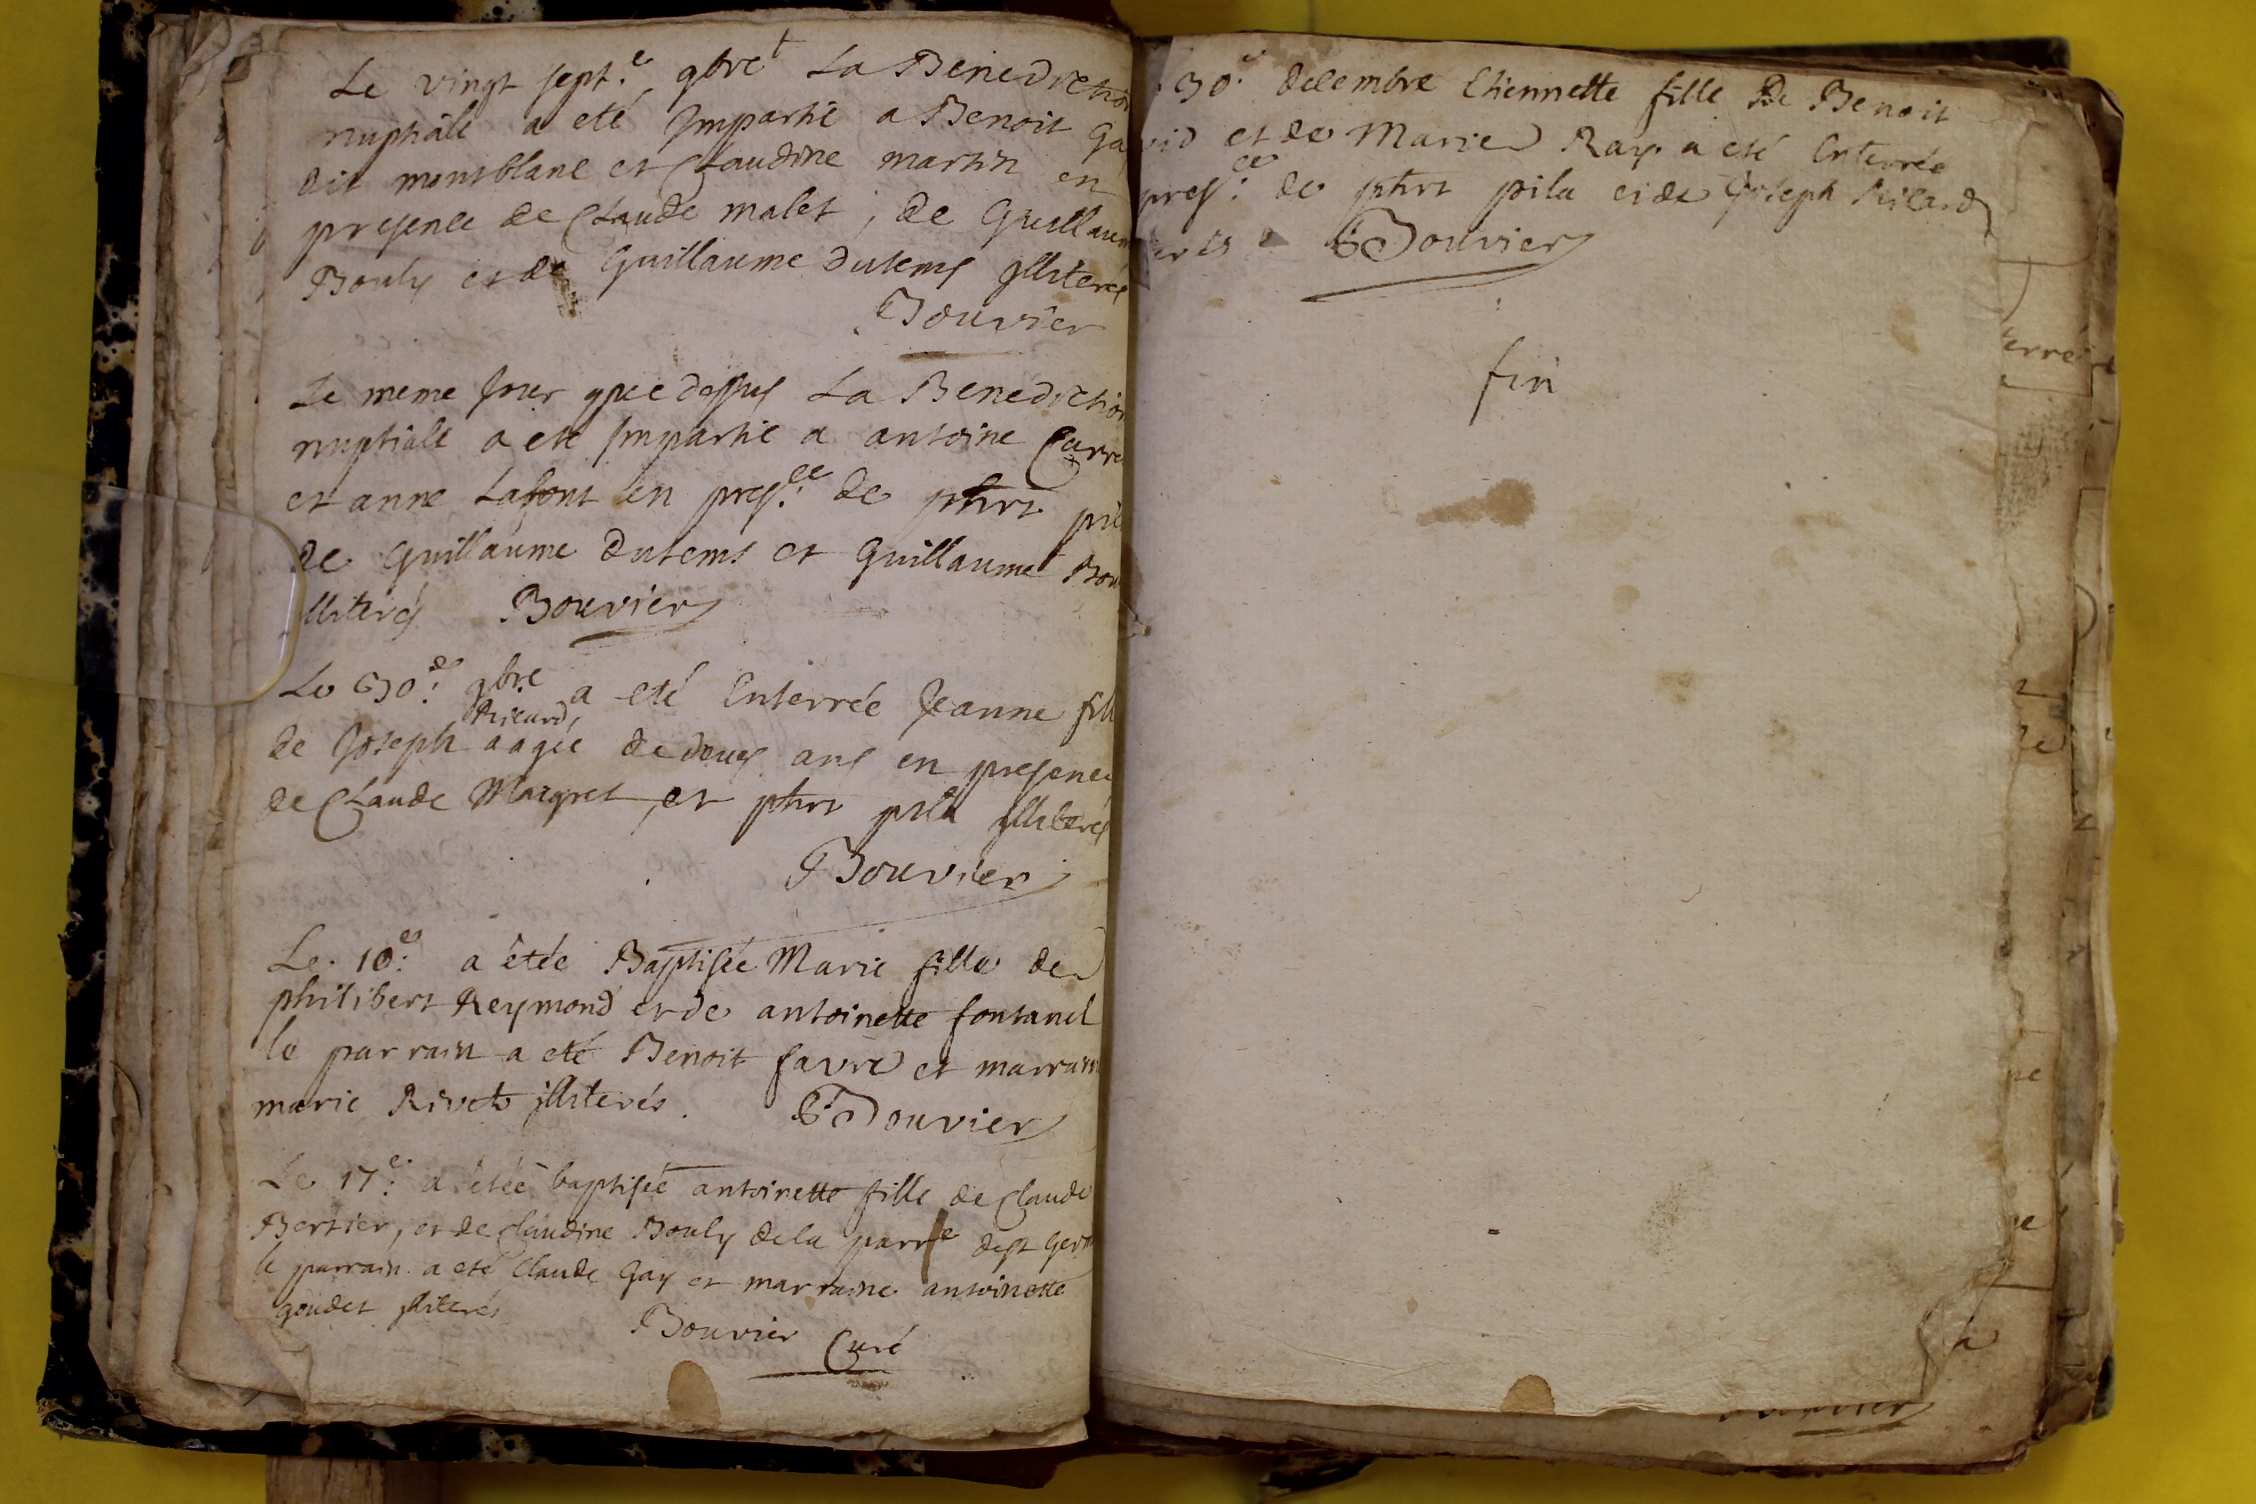 Le vingt sept.e 9bre La Benediction
nuptiale a eté Impartie a Benoit Ga
dit montblanc et Claudine martin en
presence de Claude malet, de Guillaum
Bouly et de Guillaume dutems illiterés
Bouvier
Le meme Jour que dessus La Benediction
nuptiale a eté Impartie a antoine Carre
et anne Lafont en pres.ce de phrt pila
de Guillaume dutems et Guillaume Bou
illiterés Bouvier
Le 30.e 9bre a eté Enterrée Jeanne fille
Ricard,
de Joseph aagée de deux ans en presence
de Claude Margret et phrt pila illiterés
Bouvier
Le 10.e a êtée Baptisée Marie fille de
philibert Reymond et de antoinette fontanel
le parrain a eté Benoit favre et marrain
marie Rivet illiterés. Bouvier
Le 17.e a êtée baptisée antoinette fille de Claude
Bertier, et de Claudine Bouly de la parr.e de st Germ
le parrain a eté Claude Gay et marraine antoinette
goudet illiterés
Bouvier Curé
30.e decembre Etiennette fille De Benoit
vid et de Marie Ray a eté Enterrée
pres.ce de phrt pila et de Joseph Ricard
Bouvier
fin